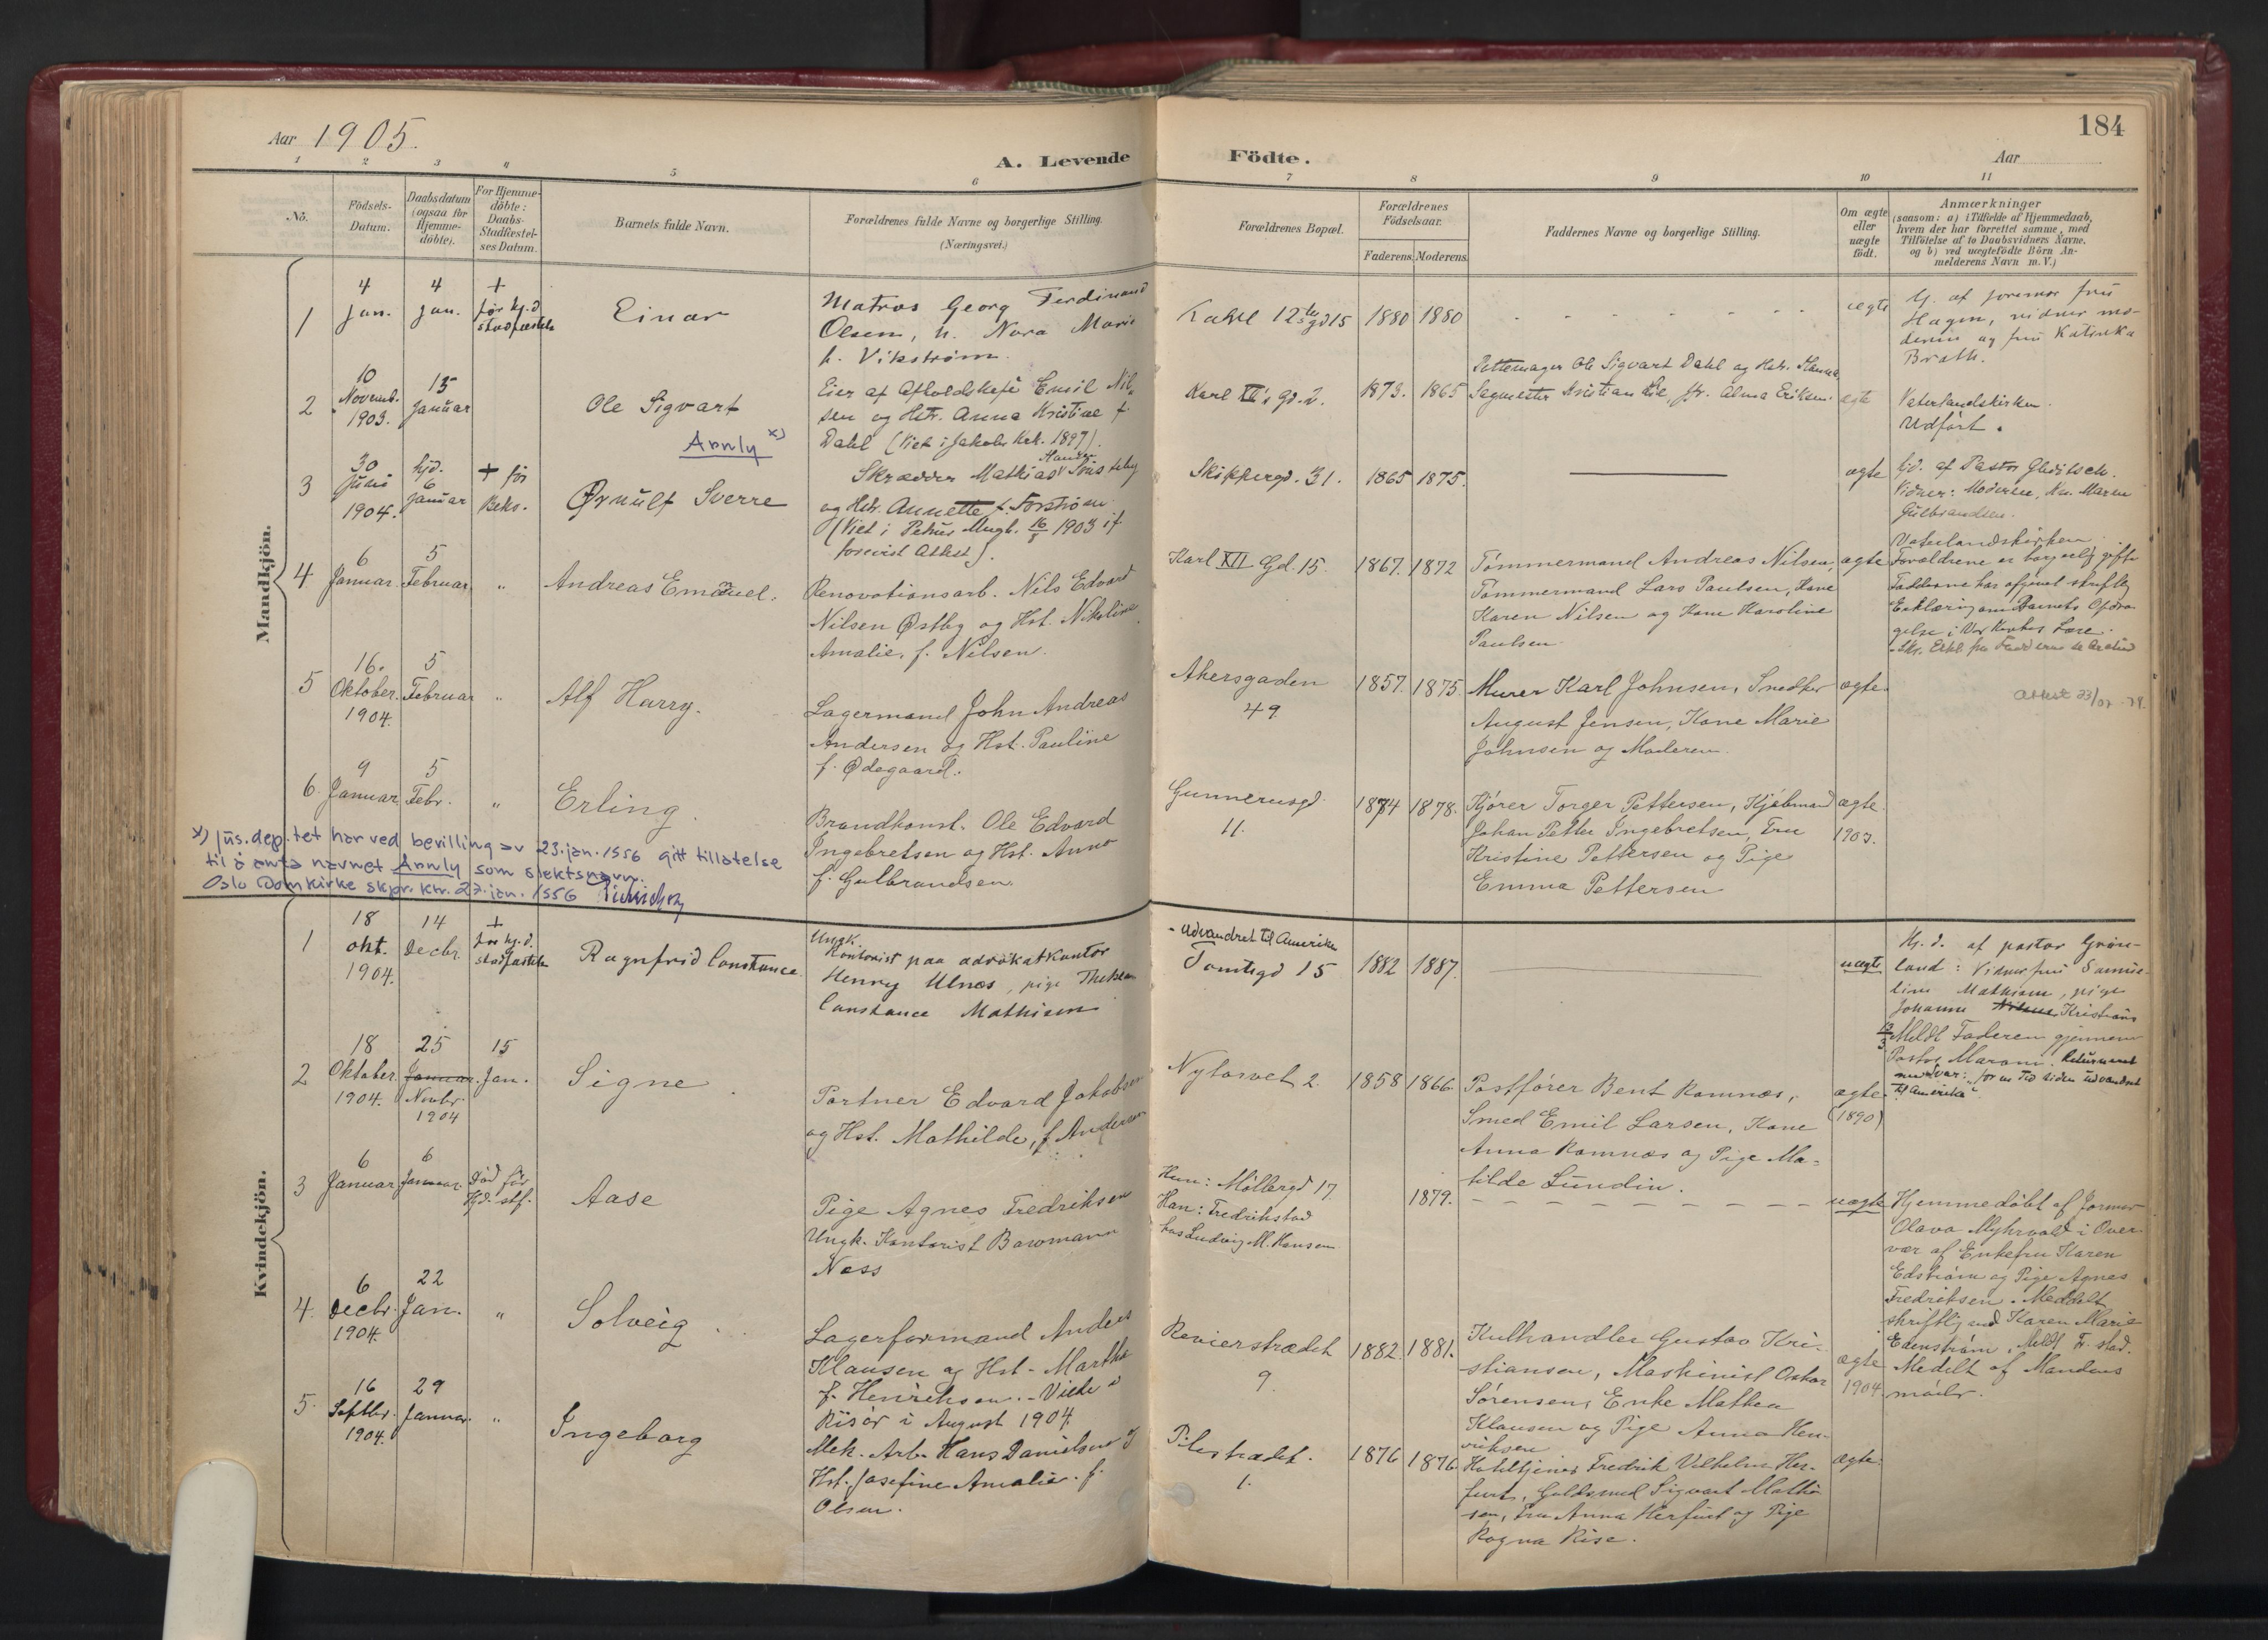 Aar 1905.
184
Aar
A. Levende Födte.
1 2 3 4 5 6 7 8 9 10 11
No.
Födsels-
Datum.
Daabsdatum
(ogsaa for
Hjemme-
döbte).
For Hjemme-
döbte:
Daabs-
Stadfæstel-
ses Datum.
Barnets fulde Navn.
Forældrenes fulde Navne og borgerlige Stilling.
(Næringsvei.)
Forældrenes Bopæl.
Forældrenes
Födselsaar.
Faderens. Moderens.
Faddernes Navne og borgerlige Stilling.
Om ægte
eller
uægte
födt.
Anmærkninger
(saasom: a) i Tilfælde af Hjemmedaab,
hvem der har forrettet samme, med
Tilföielse af to Daabsvidners Navne,
og b) ved uægtefödte Börn An-
melderens Navn m. V.)
Mandkjön.
1
4
Jan.
4
Jan.
+
før hj.d
stadfæstelse
Einar
Matros Georg Ferdinand
Olsen, h. Nora Marie
f. Vikström.
12 gd 15
1880 1880
ægte
Hj. af formor fru
Hagen, vidner mo-
deren og fru Katinka
Brath.
2
10
Novemb.
1903.
15
Januar
Ole Sigvart
Eier af Afholdskafé Emil Nil-
sen og Hstr. Anna Kristine f.
Dahl (Viet i Jakobs Kirk. 1897).
Karl XII's Gd. 2.
1873. 1865
Pettemager Ole Sigvart Dahl og Hstr. Hanna,
Sagmester Kristian Lie, fr. Alma Eriksen.
ægte
Vaterlandskirken.
Udført.
Arnly x)
3
30
Juni
1904.
hjd.
6
Januar
+ før
Beks.
Ørnulf Sverre
Skrædder Mathias Hansen
og Hstr. Annette f. Forstrøm
(Viet i Petrus Mngh. 16/5 1903 if.
forevist Attest).
Skippergd. 31.
1865 1875.
ægte
hjd. af Pastor Gleditsch.
Vidner: Moderen, Kn. Maren
Gulbrandsen.
4
6
Januar.
5
Februar.
"
Andreas Emanuel.
Renovationsarb. Nils Edvard
Nilsen Østby og Hst. Nikoline
Amalie, f. Nilsen.
Karl XII Gd. 15.
1867. 1872
Tømmermand Andreas Nilsen,
Tømmermand Lars Paulsen, Kone
Karen Nilsen og Kone Karoline
Paulsen.
ægte
Vaterlandskirken.
Forældrene er borgerlig gifte
Fadderne har afgivet skriftlig
Erklæring om Barnets Opdra-
gelse i Vor Kirkes Lære.
5
16.
Oktober.
1904.
5
Februar
"
Alf Harry.
Lagermand John Andreas
Andersen og Hst. Pauline
f. Ødegaard.
Akersgaden
49.
1857. 1875
Murer Karl Johnsen, Snedker
August Jensen, Kone Marie
Johnsen og Moderen.
ægte.
attest 23/
6.
9
Januar
5
Febr.
"
Erling.
Brandkonst. Ole Edvard
Ingebretsen og Hst. Anna
f. Gulbrandsen.
Gunnerusgd.
11.
1874 1878.
Kjører Torger Pettersen, Kjøbmand
Johan Petter Ingebretsen, Fru
Kristine Pettersen og Pige
Emma Pettersen
ægte.
1903.
x) Jus.dep.tet har ved bevilling av 23. jan. 1956 gitt tillatelse
til å anta navnet Arnly som slektsnavn.
Oslo Domkirke skpr.ktr. 27. jan. 1956
Kvindekjön.
1
18
okt.
1904.
14
Decbr.
+
før hj.d.
stadfæstelse
Ragnfrid Constance
Ungk.
Kontorist paa advokatkontor
Henry Ulnæs, pige Thekla
Constance Mathisen
- Udvandret til Amerika
Tomtegd 15
1882 1887.
uægte
Hj. d. af pastor Grøn-
land: Vidner fru Samue-
line Mathisen, pige
Johanne Kristians
Meldt Faderen gjennem
Pastor Maroni. Returneret
med svar: "for en Tid siden udvandret
til Amerika".
2
18
Oktober.
1904.
25
Januar.
Novbr.
1904
15
Jan.
Signe
Portner Edvard Jakobsen
og Hst. Mathilde, f. Andersen
Nytorvet 2.
1858 1866
Postfører Bent Ramnæs,
Smed Emil Larsen, Kone
Anna Ramnæs og Pige Ma-
tilde Lundin.
ægte.
(1890)
3
6
Januar
6
Januar.
Død før
Hjd. stf.
Aase
Pige Agnes Fredriksen
Ungk. Kontorist Bowmann
Næss
Hun: Møllergd 17.
Han: Fredrikstad
hos Ludvig M. Hansen
1879.
uægte
Hjemmedøbt af Jormor
Olava Myhrvold i Over-
vær af Enkefru Karen
Edstrøm og Pige Agnes
Fredriksen. Meddelt
skriftlig ved Karen Marie
Edenstrøm. Meldt F. stad.
Medelt af Mandens
moder.
4.
6
Decbr.
1904.
22
Jan.
"
Solveig.
Lagerformand Anders
Klausen og Hst. Martha
f. Henriksen. - Viede i
Risør i August 1904.
Revierstrædet
9.
1882. 1881.
Kulhandler Gustav Kri-
stiansen, Maskinist Oskar
Sørensen, Enke Mathea
Klausen og Pige Anna Hen-
riksen
ægte
1904.
5.
16
Septbr.
1904.
29
Januar.
"
Ingeborg
Mek. Arb. Hans Danielsen
Hst. Josefine Amalie. f.
Olsen.
Pilestrædet.
1.
1876 1876
Hotelltjener Fredrik Vilhelm Her-
furt, Guldsmed Sigvart Mathi-
sen, Fru Anna Herfurt og Pige
Ragna Rise.
ægte.